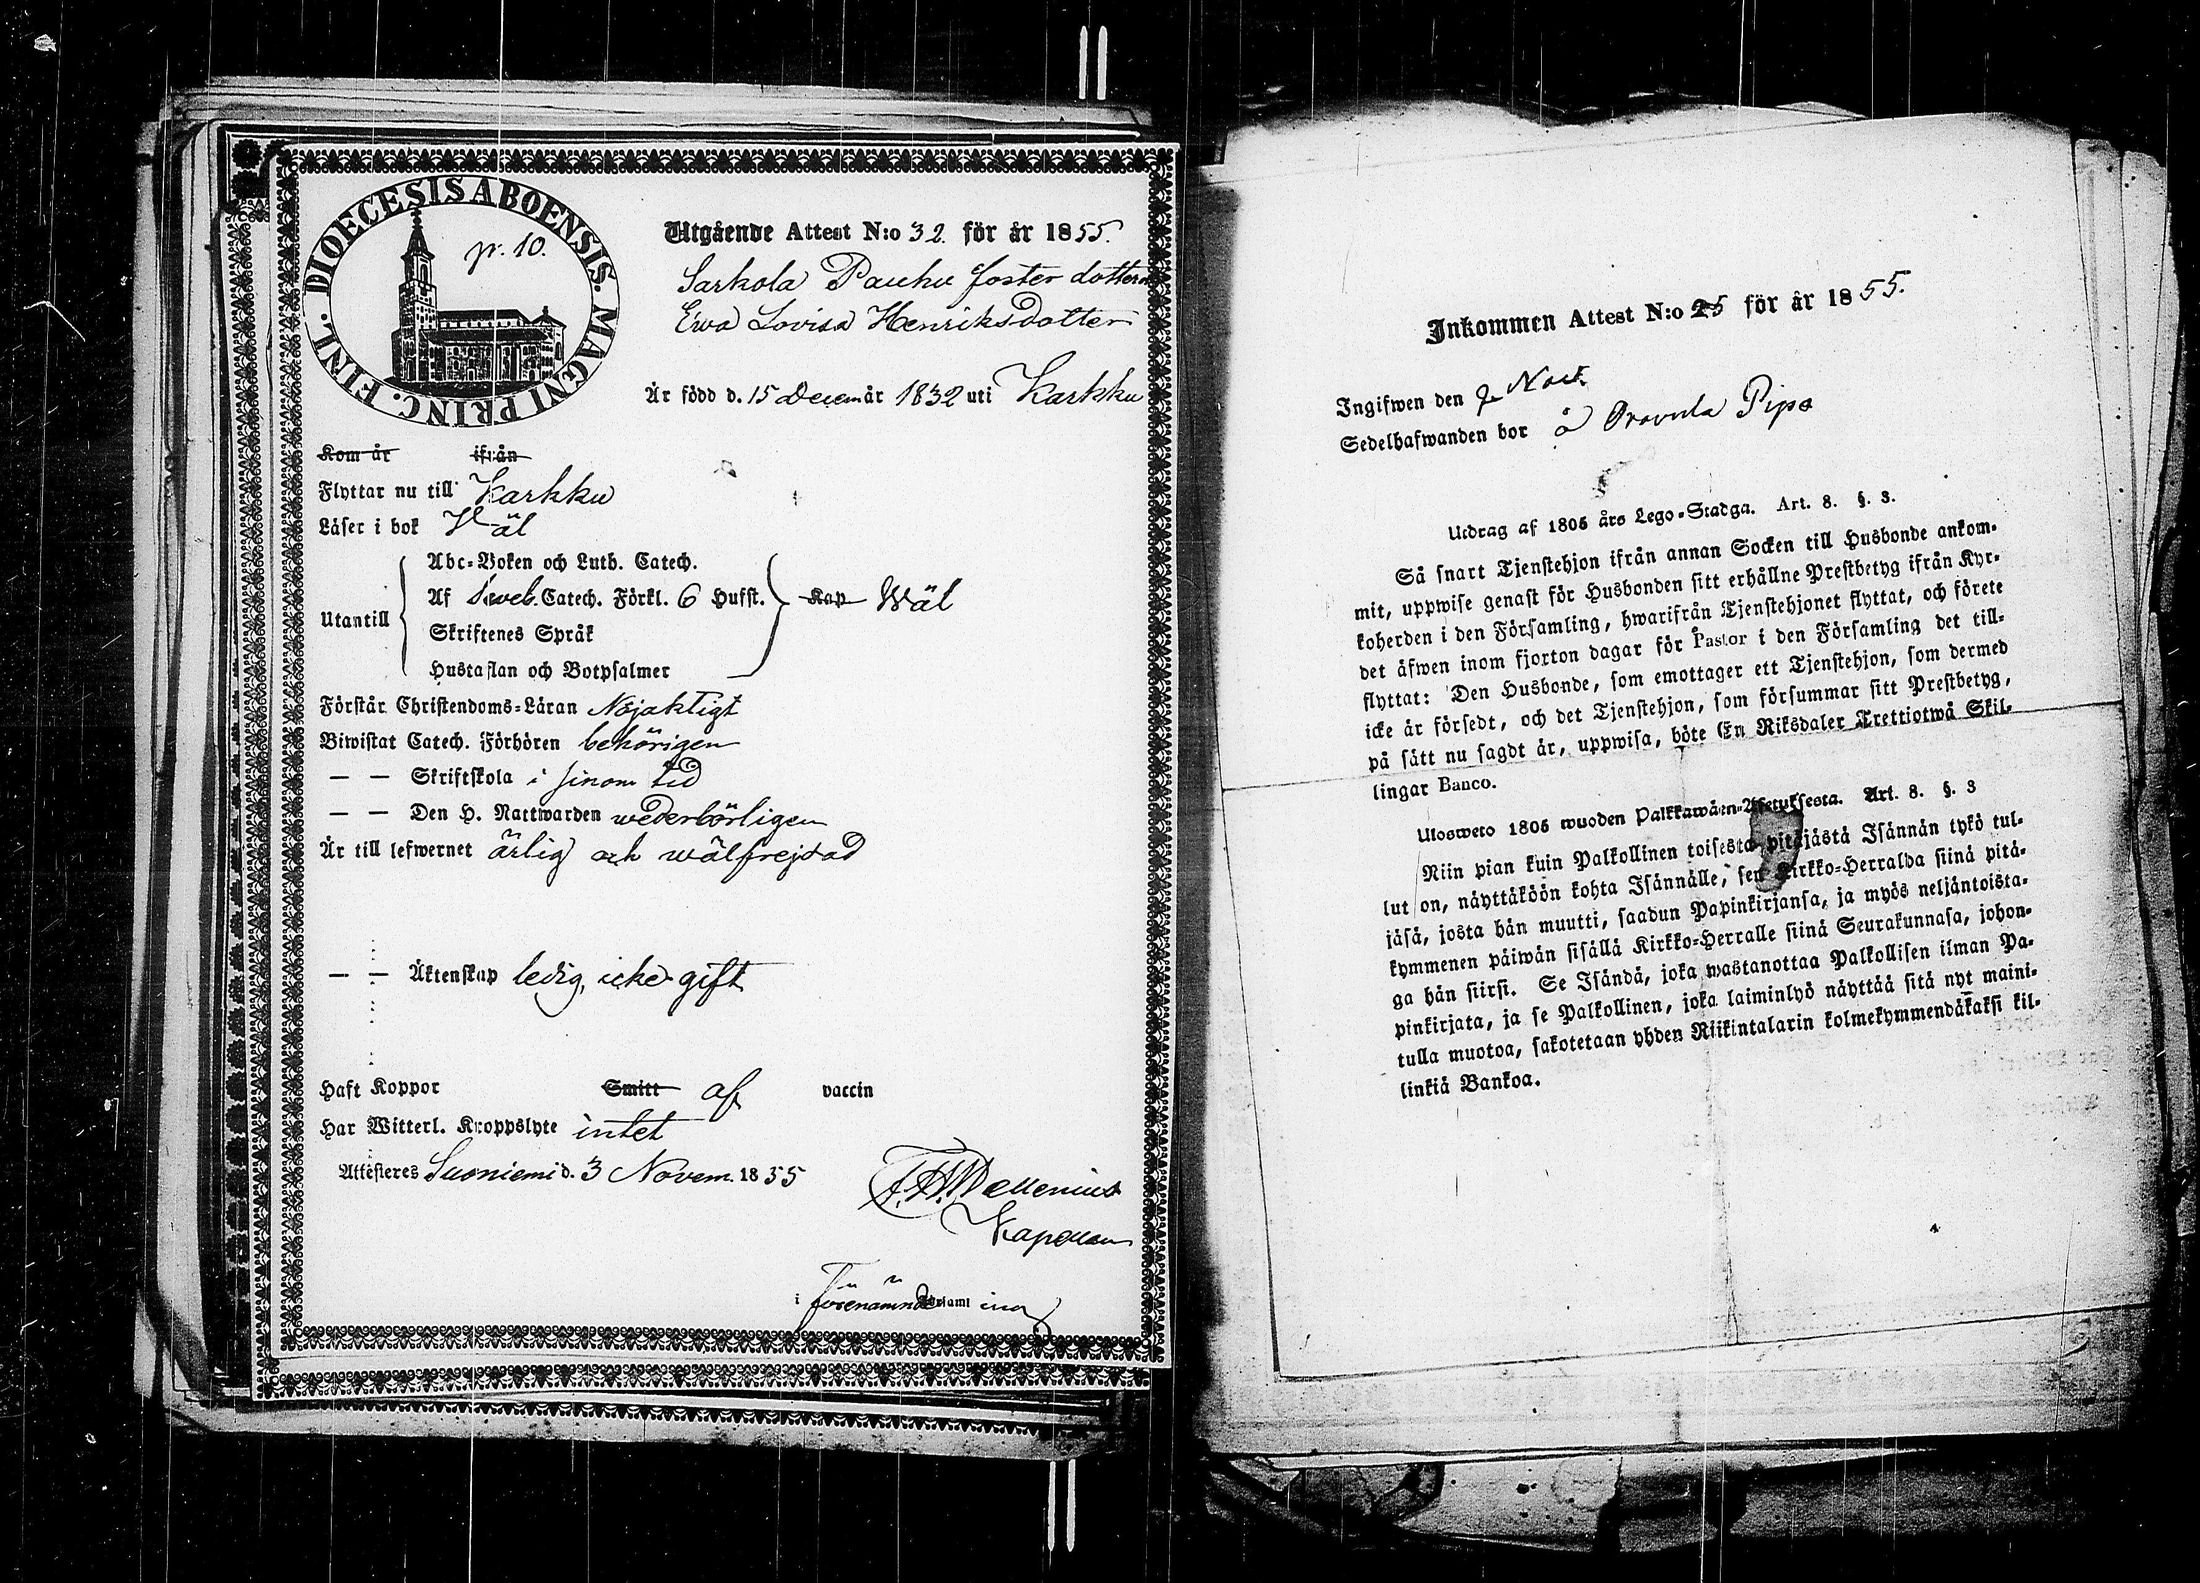 DIOECESIS ABOENSIS. MAGNI PRINC. FINL.
pr. 10.
Utgående Attest N:o 32. för år 1855.
Sarkola Pauhu foster dottern
Ewa Lovisa Henriksdotter
Är född d. 15 Decem år 1832 uti Karkku
Kom år ifrån
Flyttar nu till Karkku
Läser i bok Väl
Abc-Boken och Luth. Catech.
Utantill Af Sweb. Catech. Förkl. 6 Hufst. Kap Wäl
Skriftenes Språk
Hustaflan och Botpsalmer
Förstår Christendoms-Läran Nöjaktigt
Biwistat Catech. Förhören behörigen
— — Skriftskola i sinom tid
— — Den H. Nattwarden wederbörligen
Är till lefwernet ärlig och wälfrejdad
— — Äktenskap ledig, icke gift
Haft Koppor Smitt af vaccin
Har Witterl. Kroppslyte intet
Attesteres Suoniemi d. 3 Novem. 1855
F. H. Wallenius
Kapellan
i förenämnde Församl ing
Inkommen Attest N:o 25 för år 1855.
Ingifwen den Nov.
Sedelhafwanden bor å Oravula Pipo
Utdrag af 1805 års Lego-Stadga. Art. 8. §. 3.
Så snart Tjenstehjon ifrån annan Socken till Husbonde ankom-
mit, uppwise genast för Husbonden sitt erhållne Prestbetyg ifrån Kyr-
koherden i den Församling, hwarifrån Tjenstehjonet flyttat, och förete
det äfwen inom fjorton dagar för Pastor i den Församling det till-
flyttat: Den Husbonde, som emottager ett Tjenstehjon, som dermed
icke är försedt, och det Tjenstehjon, som försummar sitt Prestbetyg,
på sätt nu sagdt är, uppwisa, böte En Riksdaler Trettiotwå Skil-
lingar Banco.
Ulosweto 1805 wuoden Palkkawäen-Asetuksesta. Art. 8. §. 3
Niin pian kuin Palkollinen toisesta pitäjästä Isännän tykö tul-
lut on, näyttäköön kohta Isännälle, sen Kirkko-Herralda siinä pitä-
jäsä, josta hän muutti, saadun Papinkirjansa, ja myös neljäntoista-
kymmenen päiwän sisällä Kirkko-Herralle siinä Seurakunnasa, johon-
ga hän siirsi. Se Isändä, joka wastanottaa Palkollisen ilman Pa-
pinkirjata, ja se Palkollinen, joka laiminlyö näyttää sitä nyt maini-
tulla muotoa, sakotetaan yhden Riikintalarin kolmekymmendäkaksi kil-
linkiä Bankoa.